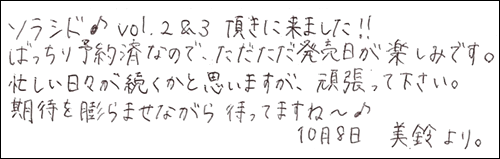 ソラシド♪ vol.2&3 頂きに来ました!!
ばっちり予約済なので、ただただ発売日が楽しみです。
忙しい日々が続くかと思いますが、頑張って下さい。
期待を膨らませながら 待ってますね〜♪
10月8日 美鈴より。